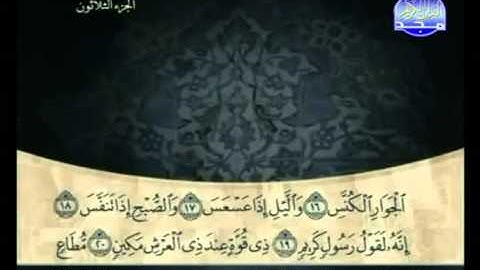 الجزء الثلاثون
مجد
الْجَوَارِ الْكُنَّسِ ١٦ وَاللَّيْلِ إِذَا عَسْعَسَ ١٧ وَالصُّبْحِ إِذَا تَنَفَّسَ ١٨
إِنَّهُ لَقَوْلُ رَسُولٍ كَرِيمٍ ١٩ ذِي قُوَّةٍ عِندَ ذِي الْعَرْشِ مَكِينٍ ٢٠ مُّطَاعٍ